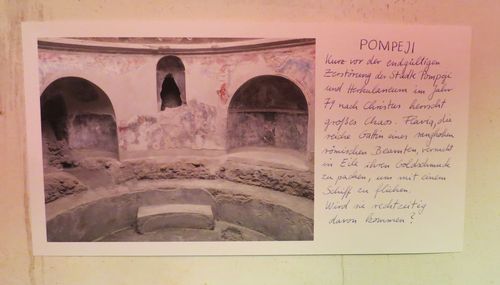 POMPEJI
Kurz vor der endgültigen
Zerstörung der Städte Pompeji
und Herkulaneum im Jahr
79 nach Christus herrscht
großes Chaos. Flavia, die
reiche Gattin eines ranghohen
römischen Beamten, versucht
in Eile ihren Goldschmuck
zu packen, um mit einem
Schiff zu fliehen.
Wird sie rechtzeitig
davon kommen?